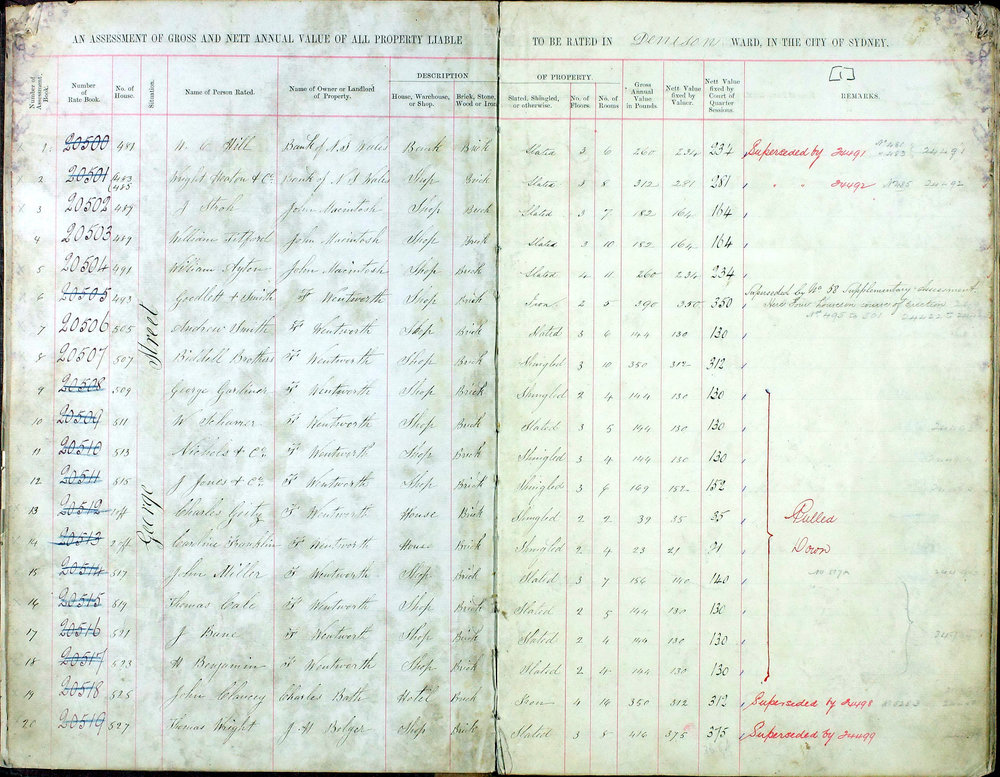 AN ASSESSMENT OF GROSS AND NETT ANNUAL VALUE OF ALL PROPERTY LIABLE TO BE RATED IN Denison WARD, IN THE CITY OF SYDNEY.
Number of Assessment Book. Number of Rate Book. No. of House. Situation. Name of Person Rated. Name of Owner or Landlord of Property. DESCRIPTION OF PROPERTY. House, Warehouse, or Shop. Brick, Stone, Wood or Iron. Slated, Shingled, or otherwise. No. of Floors. No. of Rooms Gross Annual Value in Pounds. Nett Value fixed by Valuer. Nett Value fixed by Court of Quarter Sessions. REMARKS.
George Street
1 20500 481 Hill Bank of N. S Wales Bank Brick Slated 3 6 260 234 234 Superseded by 24491 No 481 483 24491
2 20501 483 485 Wright & Co Bank of N S Wales Shop Brick Slated 3 8 312 281 281 " " 24492 No 485 24492
3 20502 487 J Stroh John Macintosh Shop Brick Slated 3 7 182 164 164
4 20503 489 William Titford John Macintosh Shop Brick Slated 3 10 182 164 164
5 20504 491 William Ayton John Macintosh Shop Brick Slated 4 11 260 234 234
6 20505 493 Goodlett & Smith F Wentworth Shop Brick Iron 2 5 390 350 350 Superseded by No 58 Supplimentary Assessment
Here Four houses in course of erection
No 495 to 501
7 20506 505 Andrew Smith F Wentworth Shop Brick Slated 3 6 144 130 130
8 20507 507 Biddell Brothers F Wentworth Shop Brick Shingled 3 10 350 312 312
9 20508 509 George Gardiner F Wentworth Shop Brick Shingled 2 4 144 130 130
10 20509 511 W F Wentworth Shop Brick Slated 3 5 144 130 130
11 20510 513 Nichols & Co F Wentworth Shop Brick Shingled 3 4 144 130 130
12 20511 515 J Jones & Co F Wentworth Shop Brick Shingled 3 6 169 152 152
13 20512 Charles F Wentworth House Brick Shingled 2 2 39 35 35 Pulled
14 20513 Caroline Franklin F Wentworth House Brick Shingled 2 4 23 21 21 Down
15 20514 517 John Miller F Wentworth Shop Brick Slated 3 7 156 140 140
16 20515 519 Thomas Cale F Wentworth Shop Brick Slated 2 5 144 130 130
17 20516 521 J F Wentworth Shop Brick Slated 2 4 144 130 130
18 20517 523 Benjamin F Wentworth Shop Brick Slated 2 4 144 130 130
19 20518 525 John Clancey Charles Bath Hotel Brick Iron 4 14 350 312 312 Superseded by 24498
20 20519 527 Thomas Wright J. H Bolger Shop Brick Slated 3 8 416 375 375 Superseded by 24499